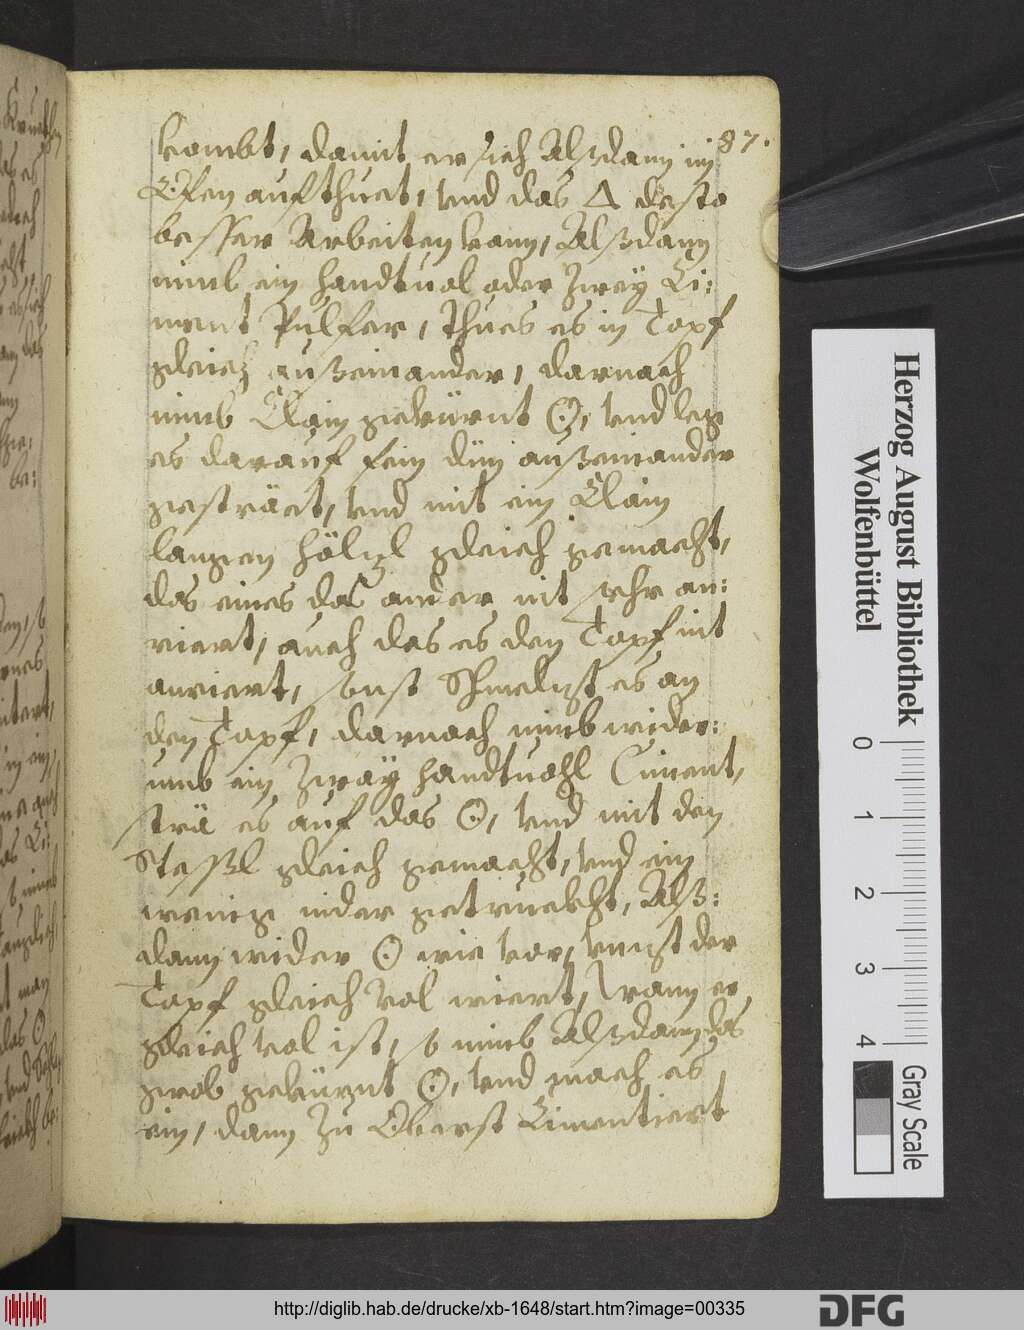 87.
kombt, damit er sich Alßdann im
Ofen aufthuet, vnd das △ desto
besser Arbeiten kann, Alßdann
nimb ein handtuol oder Zwey Ci:
ment Pulfer, Thues es in Topf
gleich außeinander, darnach
nimb Clain gekürnt ☉, vnd leg
es darauf fein din außeinander
gesträet, vnd mit ein Clain
langen hölzl gleich gemacht,
das eines das ander nit sehr an:
riert, auch das es den Topf nit
anriert, sonst Schmelzt es an
den Topf, darnach nimb wider:
umb ein Zway handtuohl Ciment,
strä es auf das ☉, vnd mit den
Steßl gleich gemacht, vnd ein
wenig nider getruckht, Alß:
dann wider ☉ wie vor, vnzt der
Topf gleich vol wiert, Wann er
gleich vol ist, so nimb Alßdann das
grob gekürnt ☉, vnd mach es
ein, dann Zu Oberst Cimentiert
Herzog August Bibliothek
Wolfenbüttel
0 1 2 3 4
Gray Scale
http://diglib.hab.de/drucke/xb-1648/start.htm?image=00335
DFG